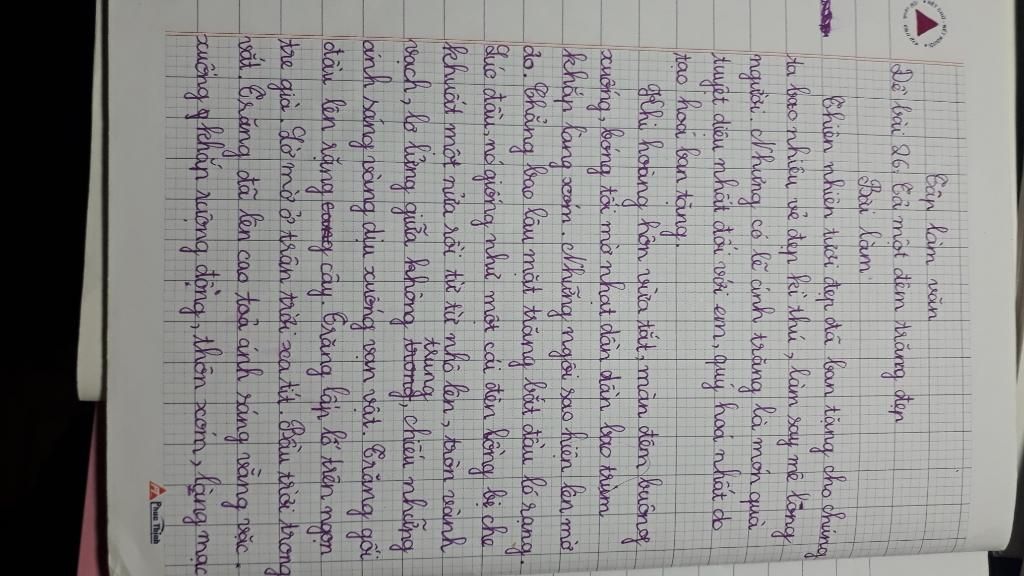 Tập làm văn
Đề bài 26: Tả một đêm trăng đẹp
Bài làm
Thiên nhiên tươi đẹp đã ban tặng cho chúng
ta bao nhiêu vẻ đẹp kì thú, làm say mê lòng
người. Nhưng có lẽ ánh trăng là món quà
tuyệt diệu nhất đối với em, quý hoá nhất do
tạo hoá ban tặng.
Khi hoàng hôn vừa tắt, màn đêm buông
xuống, bóng tối mờ nhạt dần dần bao trùm
khắp làng xóm. Những ngôi sao hiện lên mờ
ảo. Chẳng bao lâu mặt trăng bắt đầu ló rạng.
Lúc đầu, nó giống như một cái đèn lồng bị che
khuất một nửa rồi từ từ nhô lên, tròn vành
vạch, lơ lửng giữa không trung, chiếu những
ánh sáng vàng dịu xuống vạn vật. Trăng gối
đầu lên rặng cây. Trăng lấp ló trên ngọn
tre già. Lờ mờ ở trân trời xa tít. Bầu trời trong
vắt. Trăng đã lên cao toả ánh sáng vằng vặc
xuống khắp ruộng đồng, thôn xóm, làng mạc
Phúc Thịnh